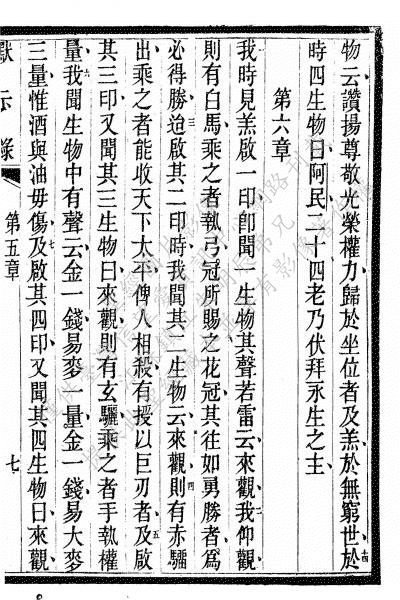 物云讚揚尊敬光榮權力歸於坐位者及羔於無窮世於十四
時四生物曰阿民二十四老乃伏拜永生之主
第六章
我時見羔啟一印卽聞一生物其聲若雷云來觀二我仰觀
則有白馬乘之者執弓冠所賜之花冠其往如勇勝者為
必得勝三迨啟其二印時我聞其二生物云來觀四則有赤驑
出乘之者能收天下太平俾人相殺有授以巨刃者五及啟
其三印又聞其三生物曰來觀則有玄驪乘之者手執權
量六我聞生物中有聲云金一錢易麥一量金一錢易大麥
三量惟酒與油毋傷七及啟其四印又聞其四生物曰來觀
默示錄
第五章
七